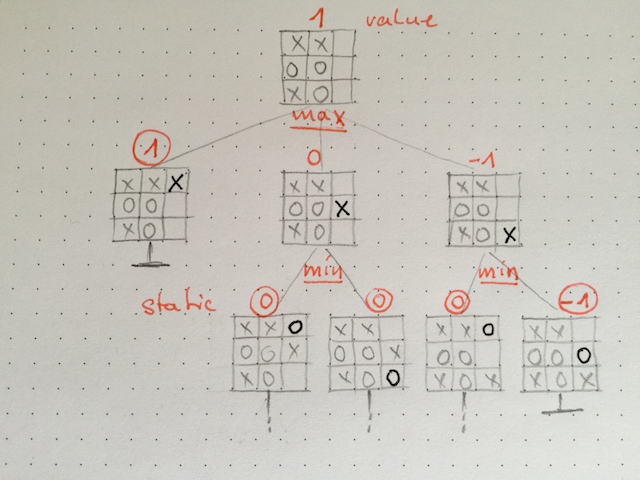 1 value
X X
O O
X O
max
1
0
-1
X X X
O O
X O
X X
O O X
X O
X X
O O
X O X
min
min
static
0
0
0
-1
X X O
O O X
X O
X X
O O X
X O O
X X O
O O
X O X
X X
O O O
X O X